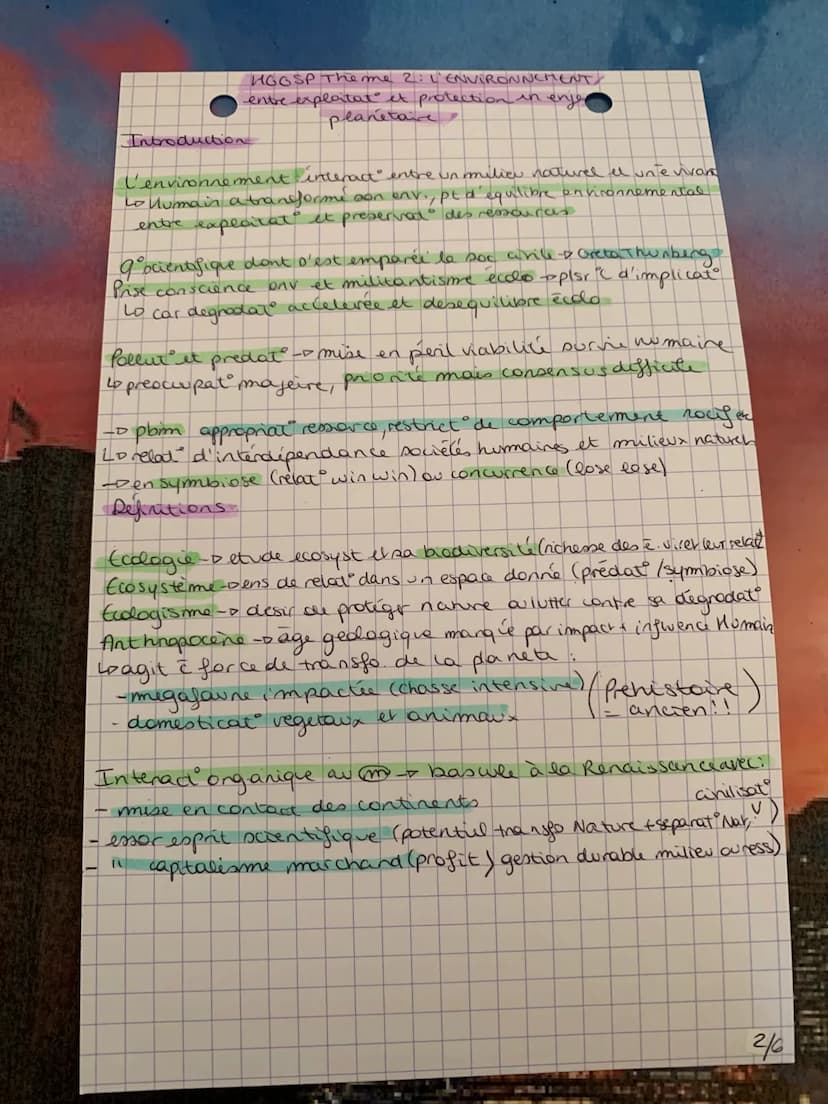 HGGSP Theme 2: L'ENVIRONNEMENT,
entre exploitat° et protection un enje
planétaire
Introduction
L'environnement: interact° entre un milieu naturel et un ê vivant
↳ Humain a transformé son env., pt d'équilibre environnemental
entre exploitat° et preservat° des ressources
q° scientifique dont s'est emparée la soc civile → Greta Thunberg
Prise conscience env et militantisme écolo → plsr d'implicat°
↳ car degradat° accélerée et desequilibre écolo
Pollut° et predat° → mise en péril viabilité survie humaine
↳ preocupat° majeire, priorité mais consensus difficile
→ pblm appropriat° ressource, restrict° de comportement nocif
↳ relat° d'interdépendance sociétés humaines et milieux naturels
→ en symbiose (relat° win win) ou concurrence (lose lose)
Définitions
Écologie → etude ecosyst et sa biodiversité (richesse des ê. vi et leur relat°
Ecosystème → ens de relat° dans un espace donné (prédat°/symbiose)
Ecologisme → désir de protéger nature a lutter contre sa dégradat°
Anthropocène → âge géologique marqué par impact + influence Humain
↳ agit c̄ force de transfo. de la planèta :
- mégafaune impactée (chasse intensive) (Préhistoire
- domesticat° vegetaux et animaux = ancien!!)
Interact° organique au m → bascule à la Renaissance avec:
- mise en contact des continents
- essor esprit scientifique (potentiel transfo Nature + séparat° Nat, civilisat°)
- " capitalisme marchand (profit) gestion durable milieu ou ress)
2/6